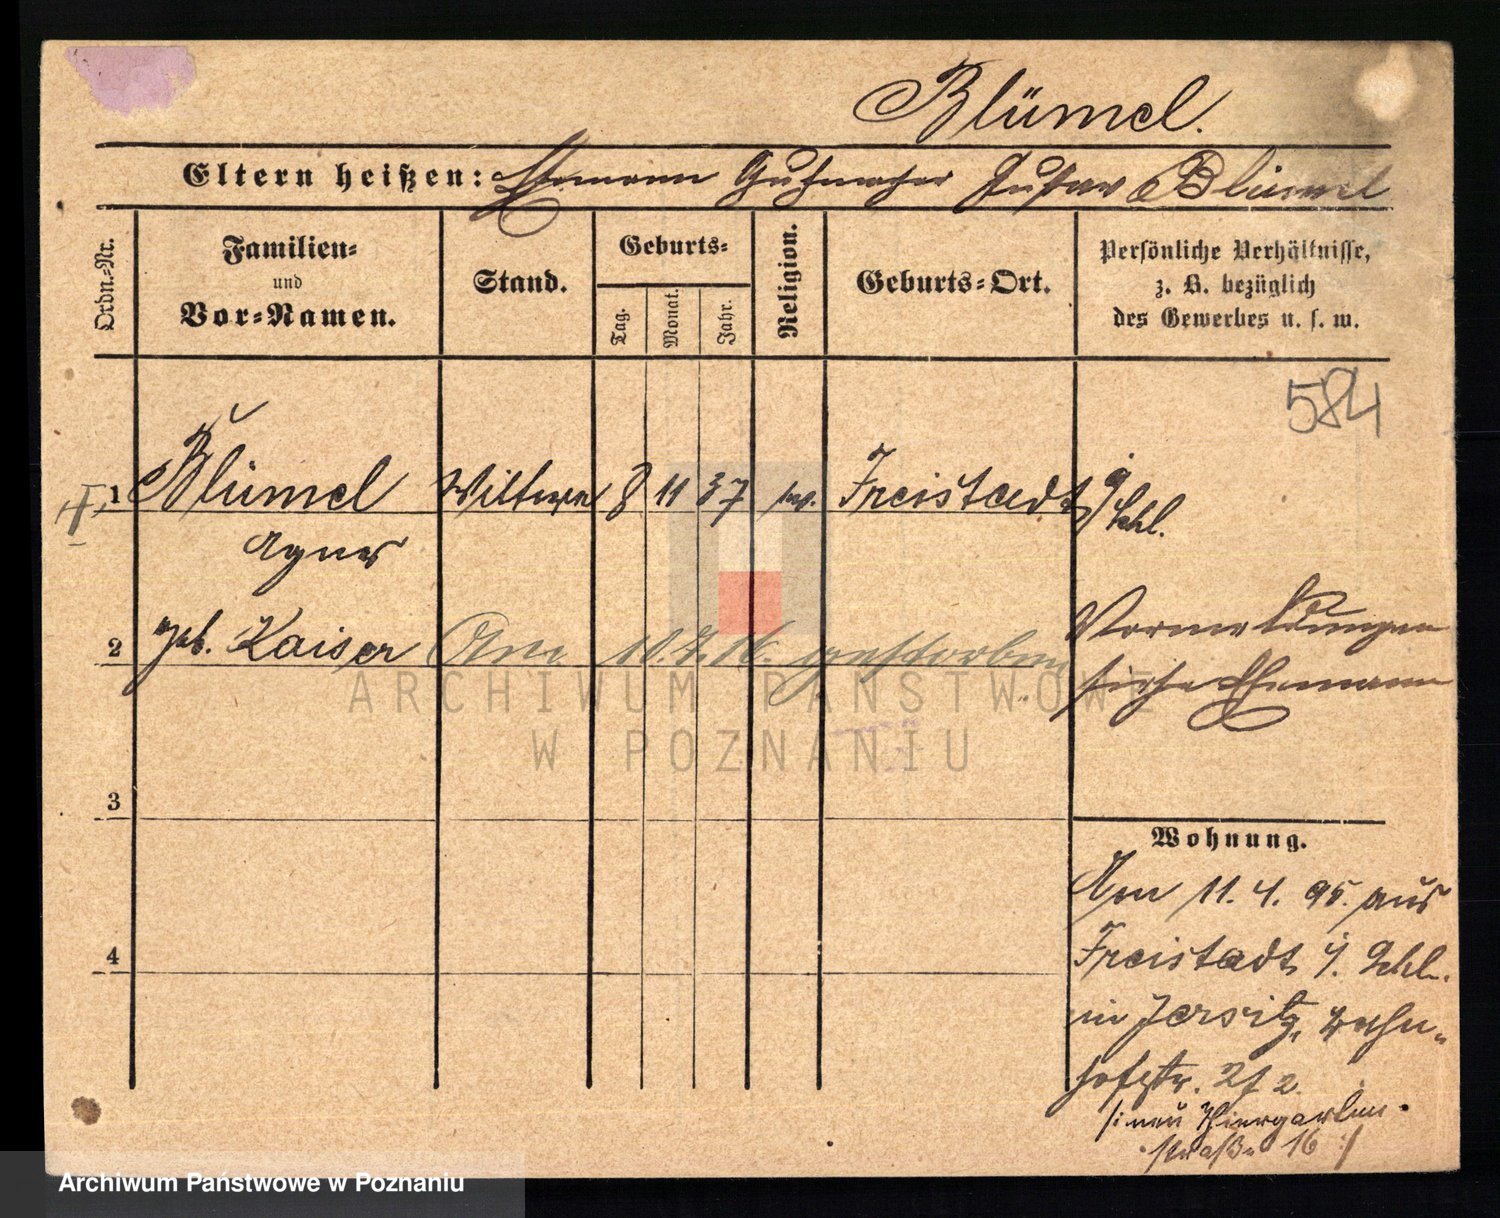 Blümel.
Eltern heißen: Ehemann Hutmacher Gustav Blümel
Ordn.-Nr.
Familien-
und
Vor-Namen.
Stand.
Geburts-
Tag.
Monat.
Jahr.
Religion.
Geburts-Ort.
Persönliche Verhältnisse,
z. B. bezüglich
des Gewerbes u. s. w.
584
1 Blümel Wittwe 8 11 37 ev. Freistadt
i/Schl.
Agnes
2 geb. Kaiser Am 10.7.16. gestorben
Vormeldungen
siehe Ehemann
ARCHIWUM PAŃSTWOWE
W POZNANIU
3
Wohnung.
Am 11. 4. 95. aus
Freistadt i. Schl.
4
in Jersitz, Bahn-
hofstr. 27 2.
/: neu Thiergarten-
straße 16 :/
Archiwum Państwowe w Poznaniu